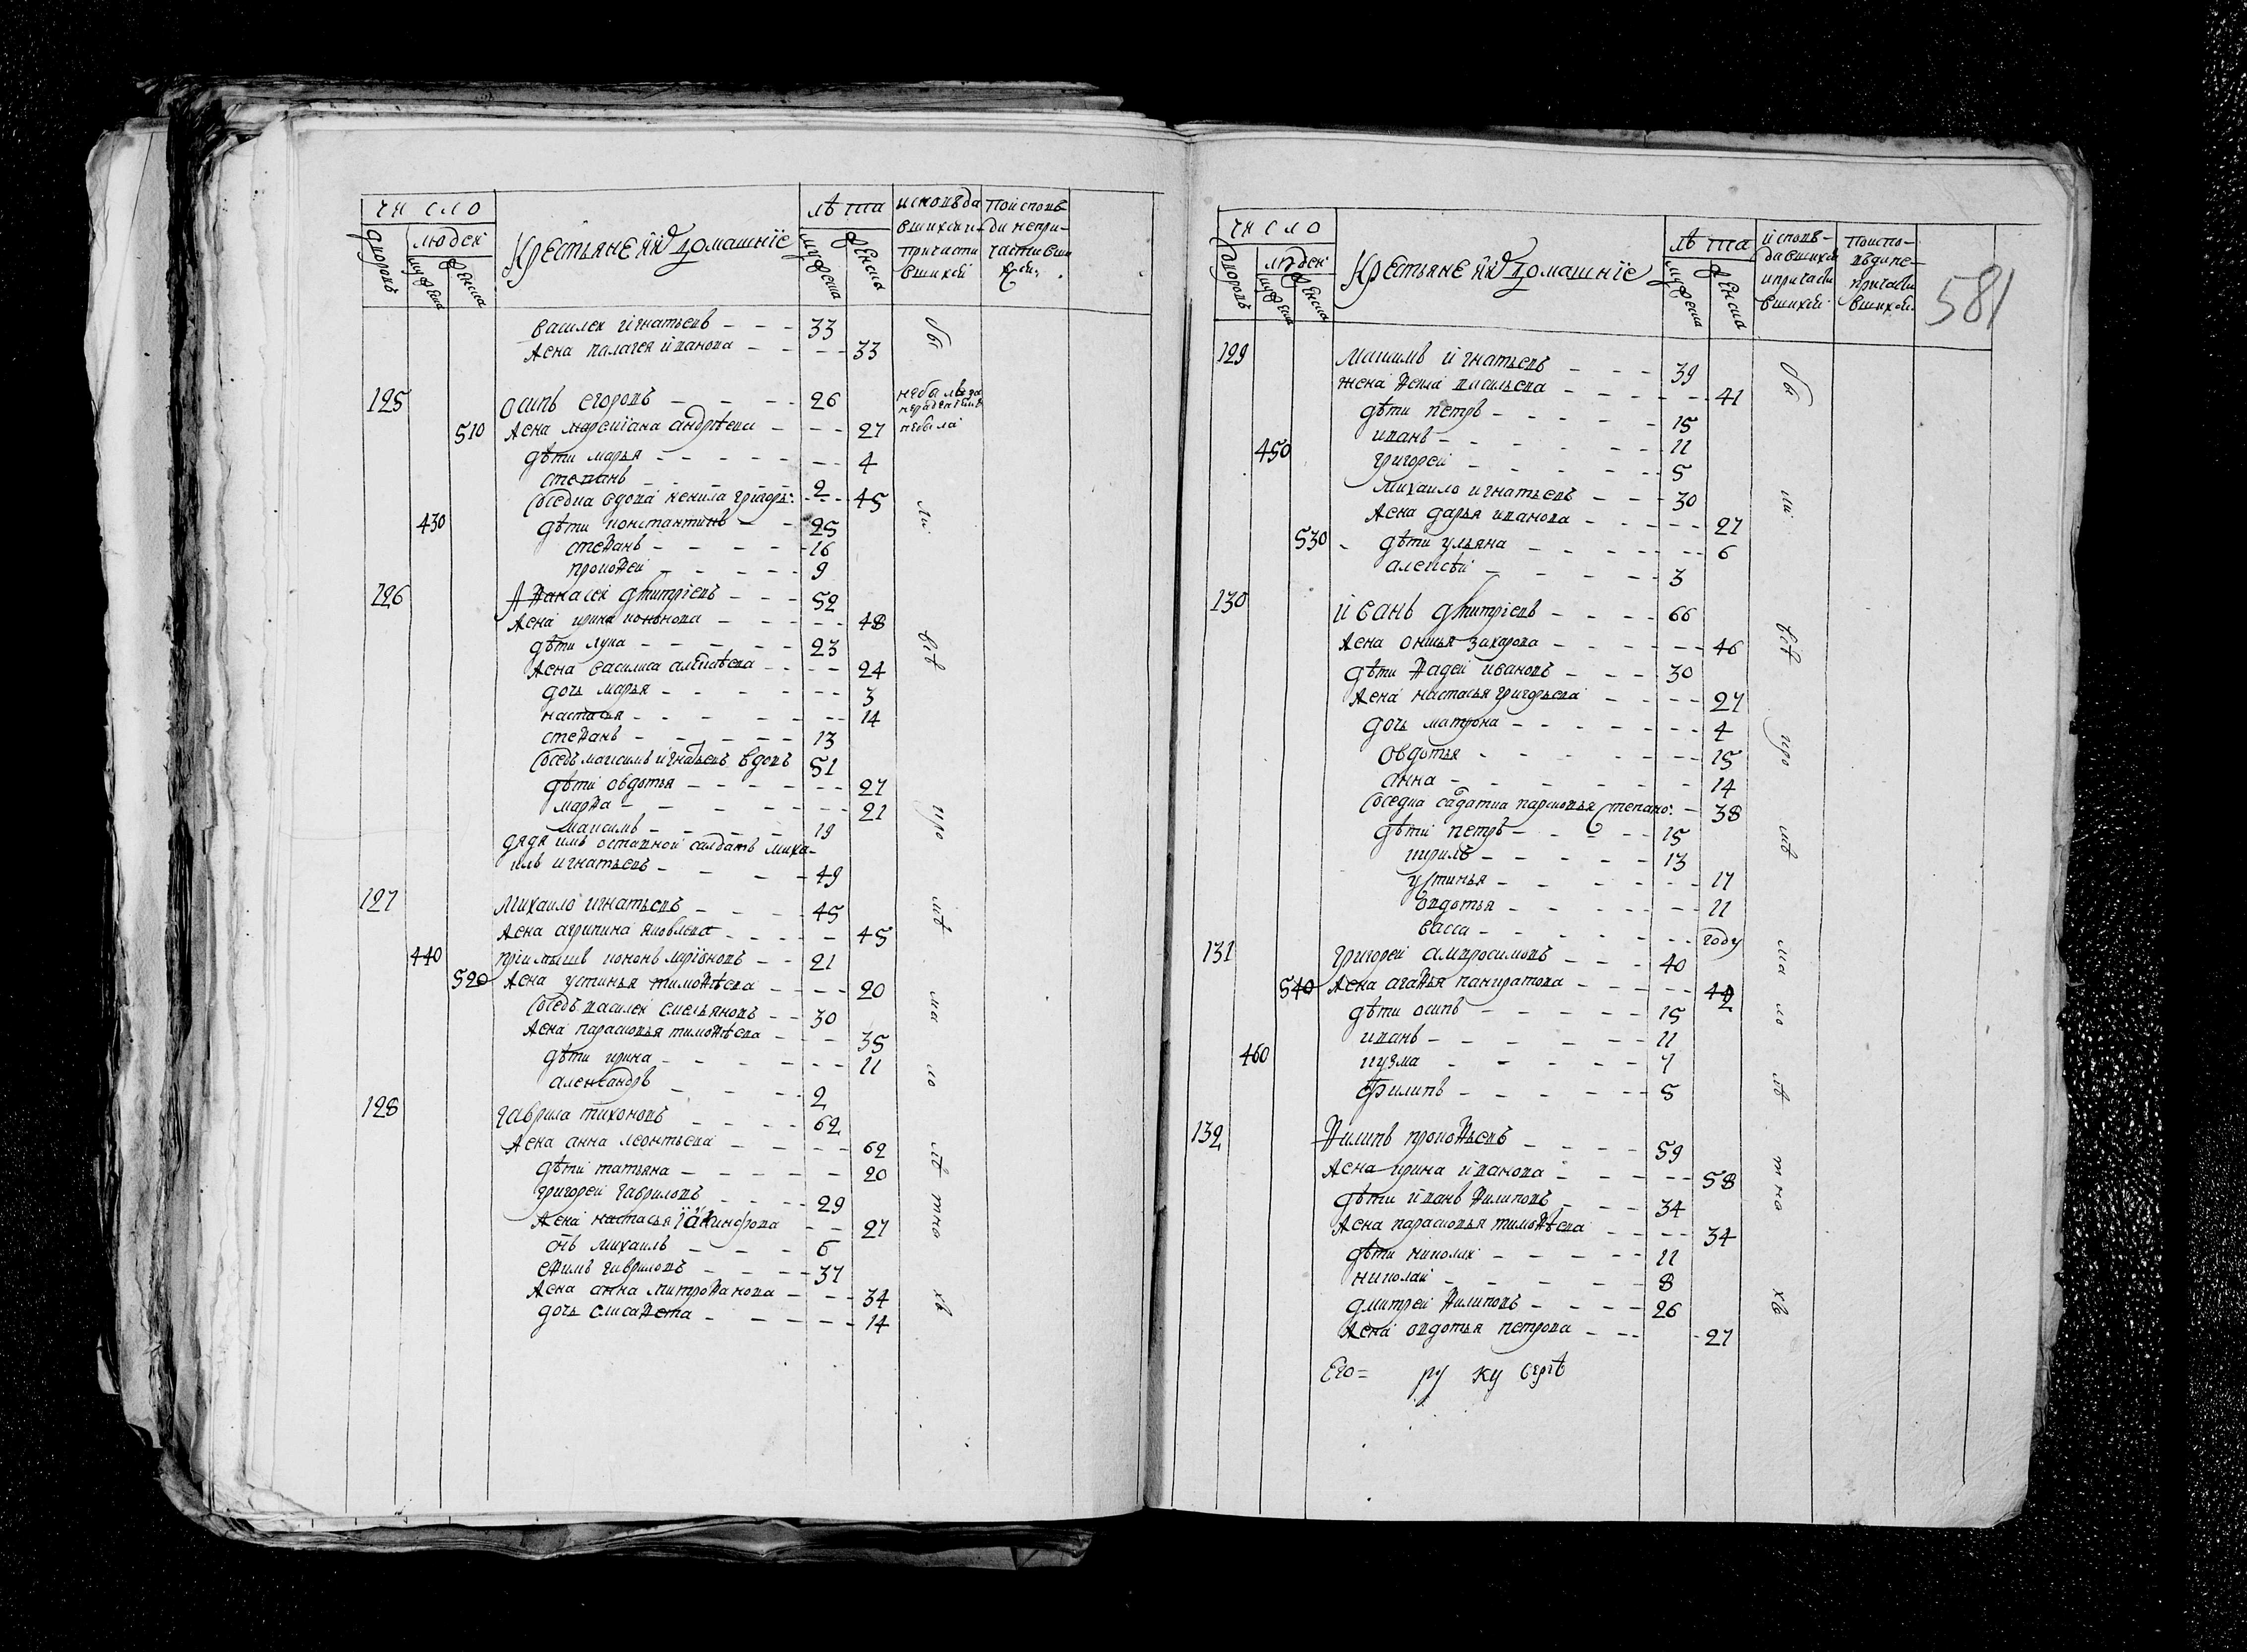 число
лѣта
исповѣда
поисповѣ
людей
Крестьяне ййх домашнїе
вшихся и
ди непри
дворовъ
мужеска
женска
мужеска
женска
причасти
частивши
вшихся
хся
василей игнатьевъ - - - 33
Жена палагея иванова - - - 33
125 осипъ егоровъ - - - 26
510 Жена андрѣева - - - 27
небыла
дѣти марья - - - 4
степанъ - - - 2
Соседка вдова ненила григорь: - - - 45
430 дѣти константинъ - - 25
стефанъ - - - 16
прокофей - - - 9
126 Афанасей дмитрїевъ - - - 52
Жена ирина кононова - - - 48
дѣти лука - - - 23
Жена василиса алеѯѣева - - - 24
дочь марья - - - 3
настасья - - - 14
стефанъ - - - 13
Соседъ максимъ игнатьевъ вдовъ 51
дѣти овдотья - - - 27
марѳа - - - 21
максимъ - - - 19
дядя имъ отставной салдатъ миха-
илъ игнатьевъ - - - 49
127 Михаило игнатьевъ - - - 45
Жена агрипина яковлева - - - 45
440 прїимышъ кононъ ларїоновъ - - 21
520 Жена устинья тимофѣева - - - 20
Соседъ василей емельяновъ - - 30
Жена парасковья тимофѣева - - - 35
дѣти ирина - - - 11
александръ - - - 2
128 гаврила тихоновъ - - - 62
Жена анна леонтьева - - - 62
дѣти татьяна - - - 20
григорей гавриловъ - - - 29
Жена настасья їакинфова - - 27
сынъ михаилъ - - - 6
ефимъ гавриловъ - - - 37
Жена анна митрофанова - - - 34
дочь елисафета - - - 14
581
число
лѣта
исповѣ-
поиспо-
людей
Крестьяне ййх домашнїе
давшихся
вѣди не-
дворовъ
мужеска
женска
мужеска
женска
и причасти
причасти
вшихся
вшихся
129 максимъ игнатьевъ - - - 39
жена фекла васильева - - - 41
дѣти петръ - - - 15
иванъ - - - 11
450 григорей - - - 5
михаило игнатьевъ - - - 30
Жена дарья иванова - - - 27
530 дѣти ульяна - - - 6
алексѣй - - - 3
130 йванъ дмитрїевъ - - - 66
Жена захарова - - - 46
дѣти фадей ивановъ - - - 30
Жена настасья григорьева - - - 27
дочь матрона - - - 4
овдотья - - - 15
анна - - - 14
Соседка салдатка парасковья степано: - 38
дѣти петръ - - - 15
кирилъ - - - 13
устинья - - - 17
овдотья - - - 11
васса - - - году
131 григорей амвросимовъ - - - 40
540 Жена агафья панкратова - - - 42
дѣти осипъ - - - 15
иванъ - - - 11
460 кузма - - - 7
филипъ - - - 5
132 филипъ прокофьевъ - - - 59
Жена ирина иванова - - - 58
дѣти иванъ филиповъ - - - 34
Жена парасковья тимофѣева - - - 34
дѣти николай - - - 11
николай - - - 8
дмитрей филиповъ - - - 26
Жена овдотья петрова - - - 27
Его= ру ку